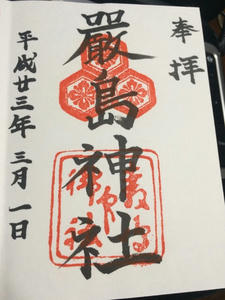 奉拝
嚴島神社
平成廿三年三月一日